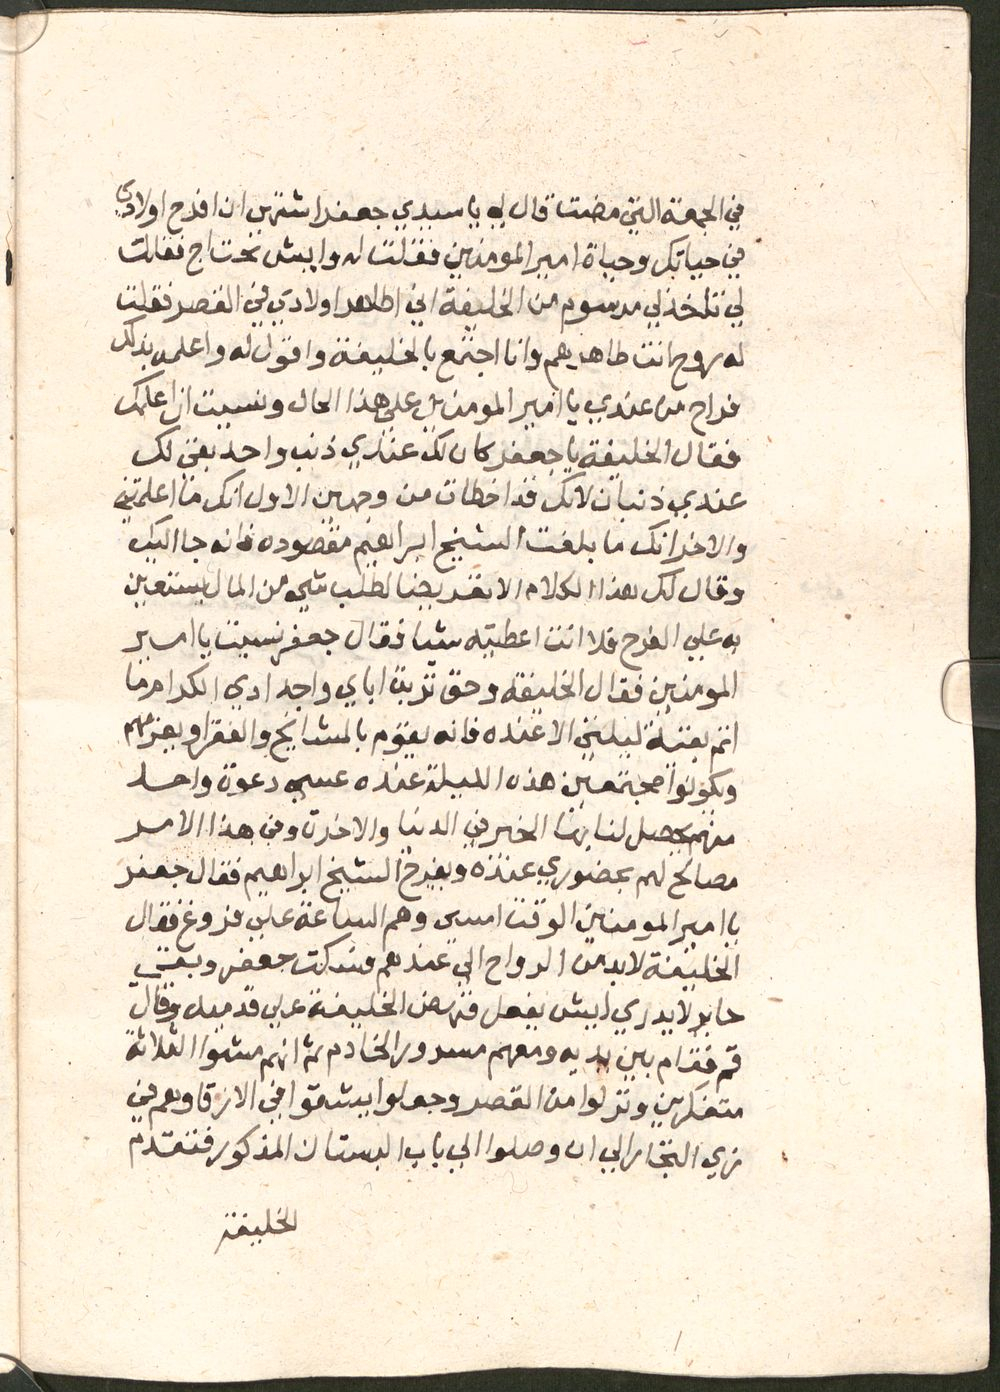 في الجمعة التي مضت قال لي يا سيدي جعفر اشتهي ان افرح اولادي
في حياتك وحياة امير المومنين فقلت له وايش تحتاج فقالت
لي تاخذ لي مرسوم من الخليفة اني اطاهر اولادي في القصر فقلت
له روح انت طاهريهم وانا اجتمع بالخليفة واقول له واعلمه بذلك
فراح من عندي يا امير المومنين على هذا الحال ونسيت ان اعلمك
فقال الخليفة يا جعفر كان لك عندي ذنب واحد بقي لك
عندي ذنبان لانك قد اخطات من وجهين الاول انك ما اعلمتني
والاخر انك ما بلغت الشيخ ابراهيم مقصوده فانه جا اليك
وقال لك هذا الكلام الا تعريضا لطلب شي من المال يستعين
به علي الفرح فلا انت اعطيته شيا فقال جعفر نسيت يا امير
المومنين فقال الخليفة وحق تربة اباي واجدادي الكرام ما
اتم بقية ليلتي الا عنده فانه يقوم بالمشايخ والفقرا ويعزمهم
ويكونوا مجتمعين هذه الليلة عنده عسي دعوة واحد
منهم يحصل لنا بها الخير في الدنيا والاخرة وفي هذا الامر
مصالح لهم بحضوري عنده ويفرح الشيخ ابراهيم فقال جعفر
يا امير المومنين الوقت امسي وهم الساعة علي فروغ فقال
الخليفة لا بد من الرواح الي عندهم فسكت جعفر وبقي
حاير لا يدري ايش يفعل فنهض الخليفة علي قدميه وقال
قم فقام بين يديه ومعهم مسرور الخادم ثم انهم مشوا الثلاثة
متفكرين ونزلوا من القصر وجعلوا يشقوا في الازقا وهم في
زي التجار الي ان وصلوا الي باب البستان المذكور فتقدم
الخليفة